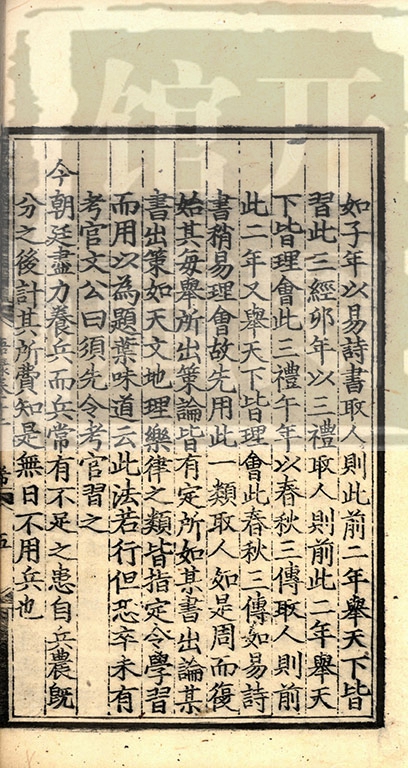 如子年以易詩書取人則此前二年舉天下皆
習此三經卯年以三禮取人則前此二年舉天
下皆理會此三禮午年以春秋三傳取人則前
此二年又舉天下皆理會此春秋三傳如易詩
書稍易理會故先用此一類取人如是周而復
始其每舉所出策論皆有定所如某書出論某
書出策如天文地理樂律之類皆指定令學習
而用以為題葉味道云此法若行但恐卒未有
考官文公曰須先令考官習之
今朝廷盡力養兵而兵常有不足之患自兵農既
分之後計其所費知是無日不用兵也
五